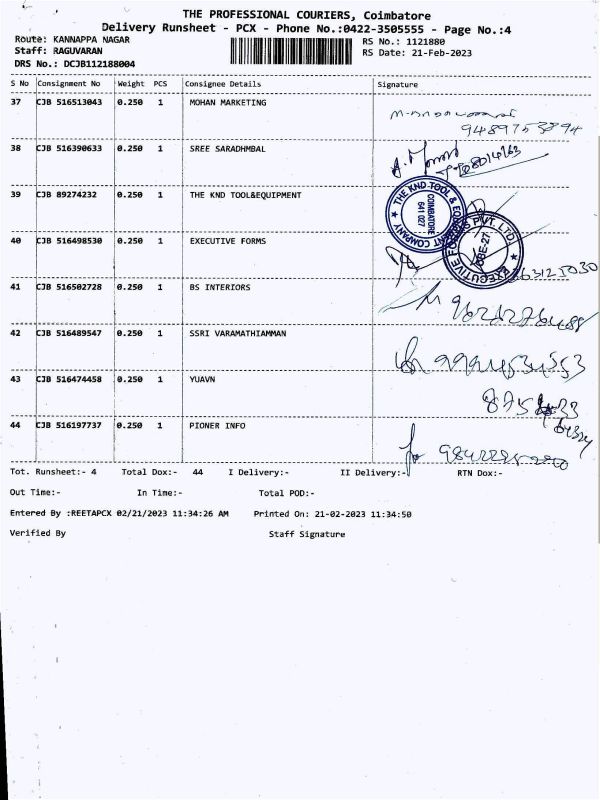 THE PROFESSIONAL COURIERS, Coimbatore
Delivery Runsheet - PCX - Phone No.:0422-3505555 - Page No.:4
Route: KANNAPPA NAGAR RS No.: 1121880
Staff: RAGUVARAN RS Date: 21-Feb-2023
DRS No.: DCJB112188004
S No Consignment No Weight PCS Consignee Details Signature
37 CJB 516513043 0.250 1 MOHAN MARKETING
38 CJB 516390633 0.250 1 SREE SARADHMBAL
39 CJB 89274232 0.250 1 THE KND TOOL&EQUIPMENT
THE KND TOOL & EQUIPMENT COMPANY
COIMBATORE
641 027
40 CJB 516498530 0.250 1 EXECUTIVE FORMS
EXECUTIVE FORMS PVT. LTD.
CBE-27
41 CJB 516502728 0.250 1 BS INTERIORS
42 CJB 516489547 0.250 1 SSRI VARAMATHIAMMAN
43 CJB 516474458 0.250 1 YUAVN
44 CJB 516197737 0.250 1 PIONER INFO
Tot. Runsheet:- 4 Total Dox:- 44 I Delivery:- II Delivery:- RTN Dox:-
Out Time:- In Time:- Total POD:-
Entered By :REETAPCX 02/21/2023 11:34:26 AM Printed On: 21-02-2023 11:34:50
Verified By Staff Signature